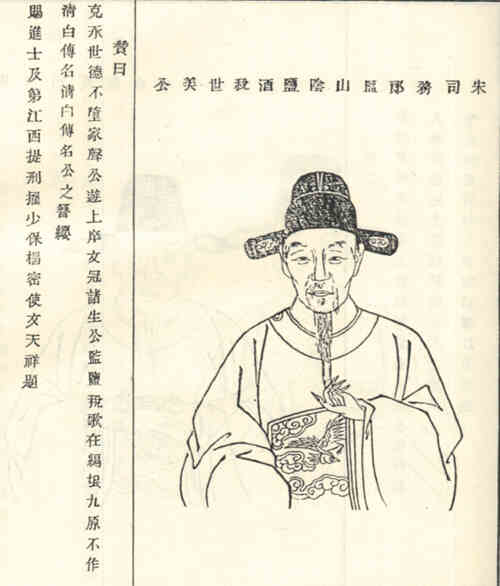 朱司務郎監山陰鹽酒稅世美公
贊曰
克承世德不墮家聲公遊上庠文冠諸生公監鹽稅歌在編氓九原不作
清白傳名清白傳名公之簪纓
賜進士及第江西提刑擢少保樞密使文天祥題